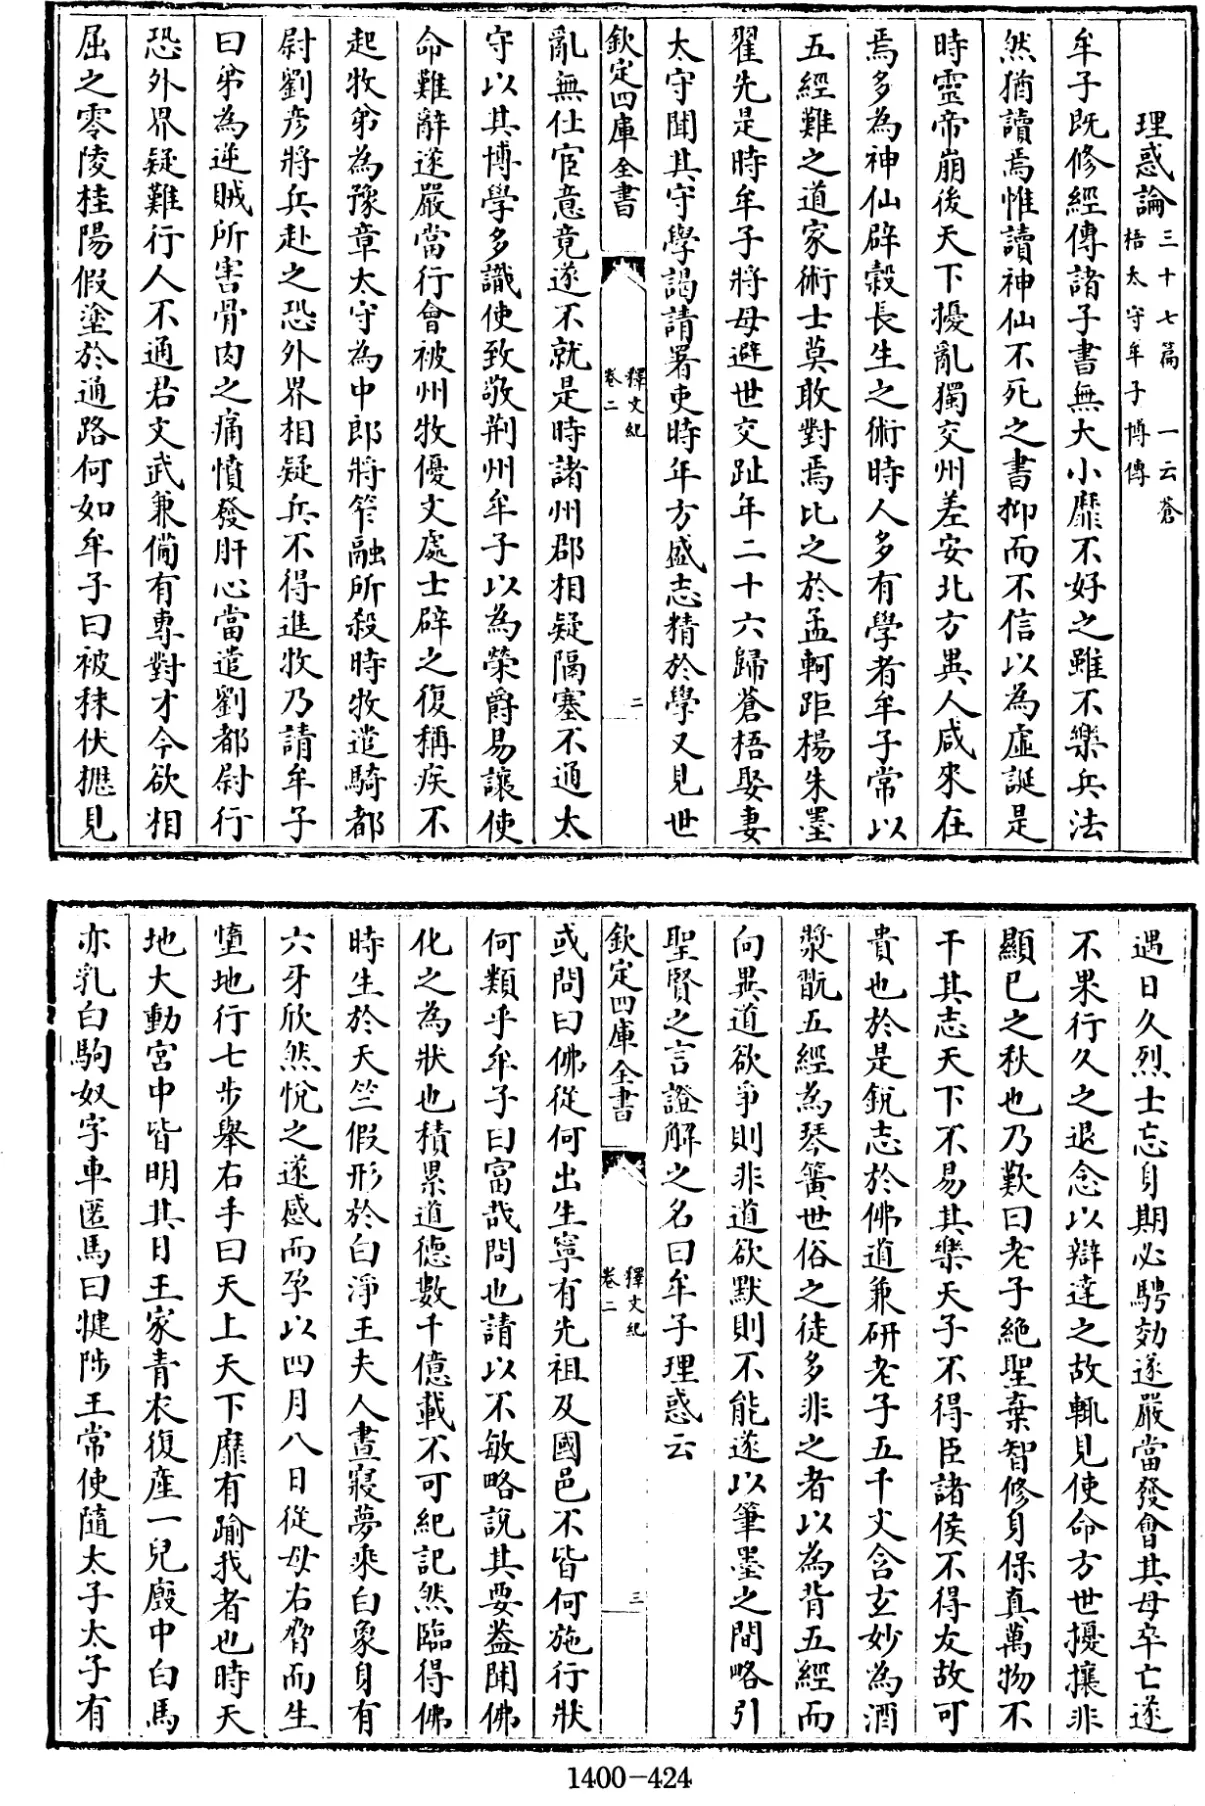 理惑論三十七篇 一云蒼
梧太守牟子博傳
牟子既修經傳諸子書無大小靡不好之雖不樂兵法
然猶讀焉惟讀神仙不死之書抑而不信以為虛誕是
時靈帝崩後天下擾亂獨交州差安北方異人咸來在
焉多為神仙辟穀長生之術時人多有學者牟子常以
五經難之道家術士莫敢對焉比之於孟軻距楊朱墨
翟先是時牟子將母避世交趾年二十六歸蒼梧娶妻
太守聞其守學謁請署吏時年方盛志精於學又見世
欽定四庫全書
釋文紀
卷二
二
亂無仕宦意竟遂不就是時諸州郡相疑隔塞不通太
守以其博學多識使致敬荆州牟子以為榮爵易讓使
命難辭遂嚴當行會被州牧優文處士辟之復稱疾不
起牧弟為豫章太守為中郎將笮融所殺時牧遣騎都
尉劉彥將兵赴之恐外界相疑兵不得進牧乃請牟子
曰弟為逆賊所害骨肉之痛憤發肝心當遣劉都尉行
恐外界疑難行人不通君文武兼備有專對才今欲相
屈之零陵桂陽假塗於通路何如牟子曰被秣伏櫪見
遇日久烈士忘身期必騁効遂嚴當發會其母卒亡遂
不果行久之退念以辯達之故輒見使命方世擾攘非
顯已之秋也乃歎曰老子絶聖棄智修身保真萬物不
干其志天下不易其樂天子不得臣諸侯不得友故可
貴也於是銳志於佛道兼研老子五千文含玄妙為酒
漿翫五經為琴簧世俗之徒多非之者以為背五經而
向異道欲爭則非道欲默則不能遂以筆墨之間略引
聖賢之言證解之名曰牟子理惑云
欽定四庫全書
釋文紀
卷二
三
或問曰佛從何出生寧有先祖及國邑不皆何施行狀
何類乎牟子曰富哉問也請以不敏略說其要葢聞佛
化之為狀也積累道德數千億載不可紀記然臨得佛
時生於天竺假形於白淨王夫人晝寢夢乘白象身有
六牙欣然悅之遂感而孕以四月八日從母右脅而生
墮地行七步舉右手曰天上天下靡有踰我者也時天
地大動宮中皆明其日王家青衣復産一兒廏中白馬
亦乳白駒奴字車匿馬曰揵陟王常使隨太子太子有
1400-424